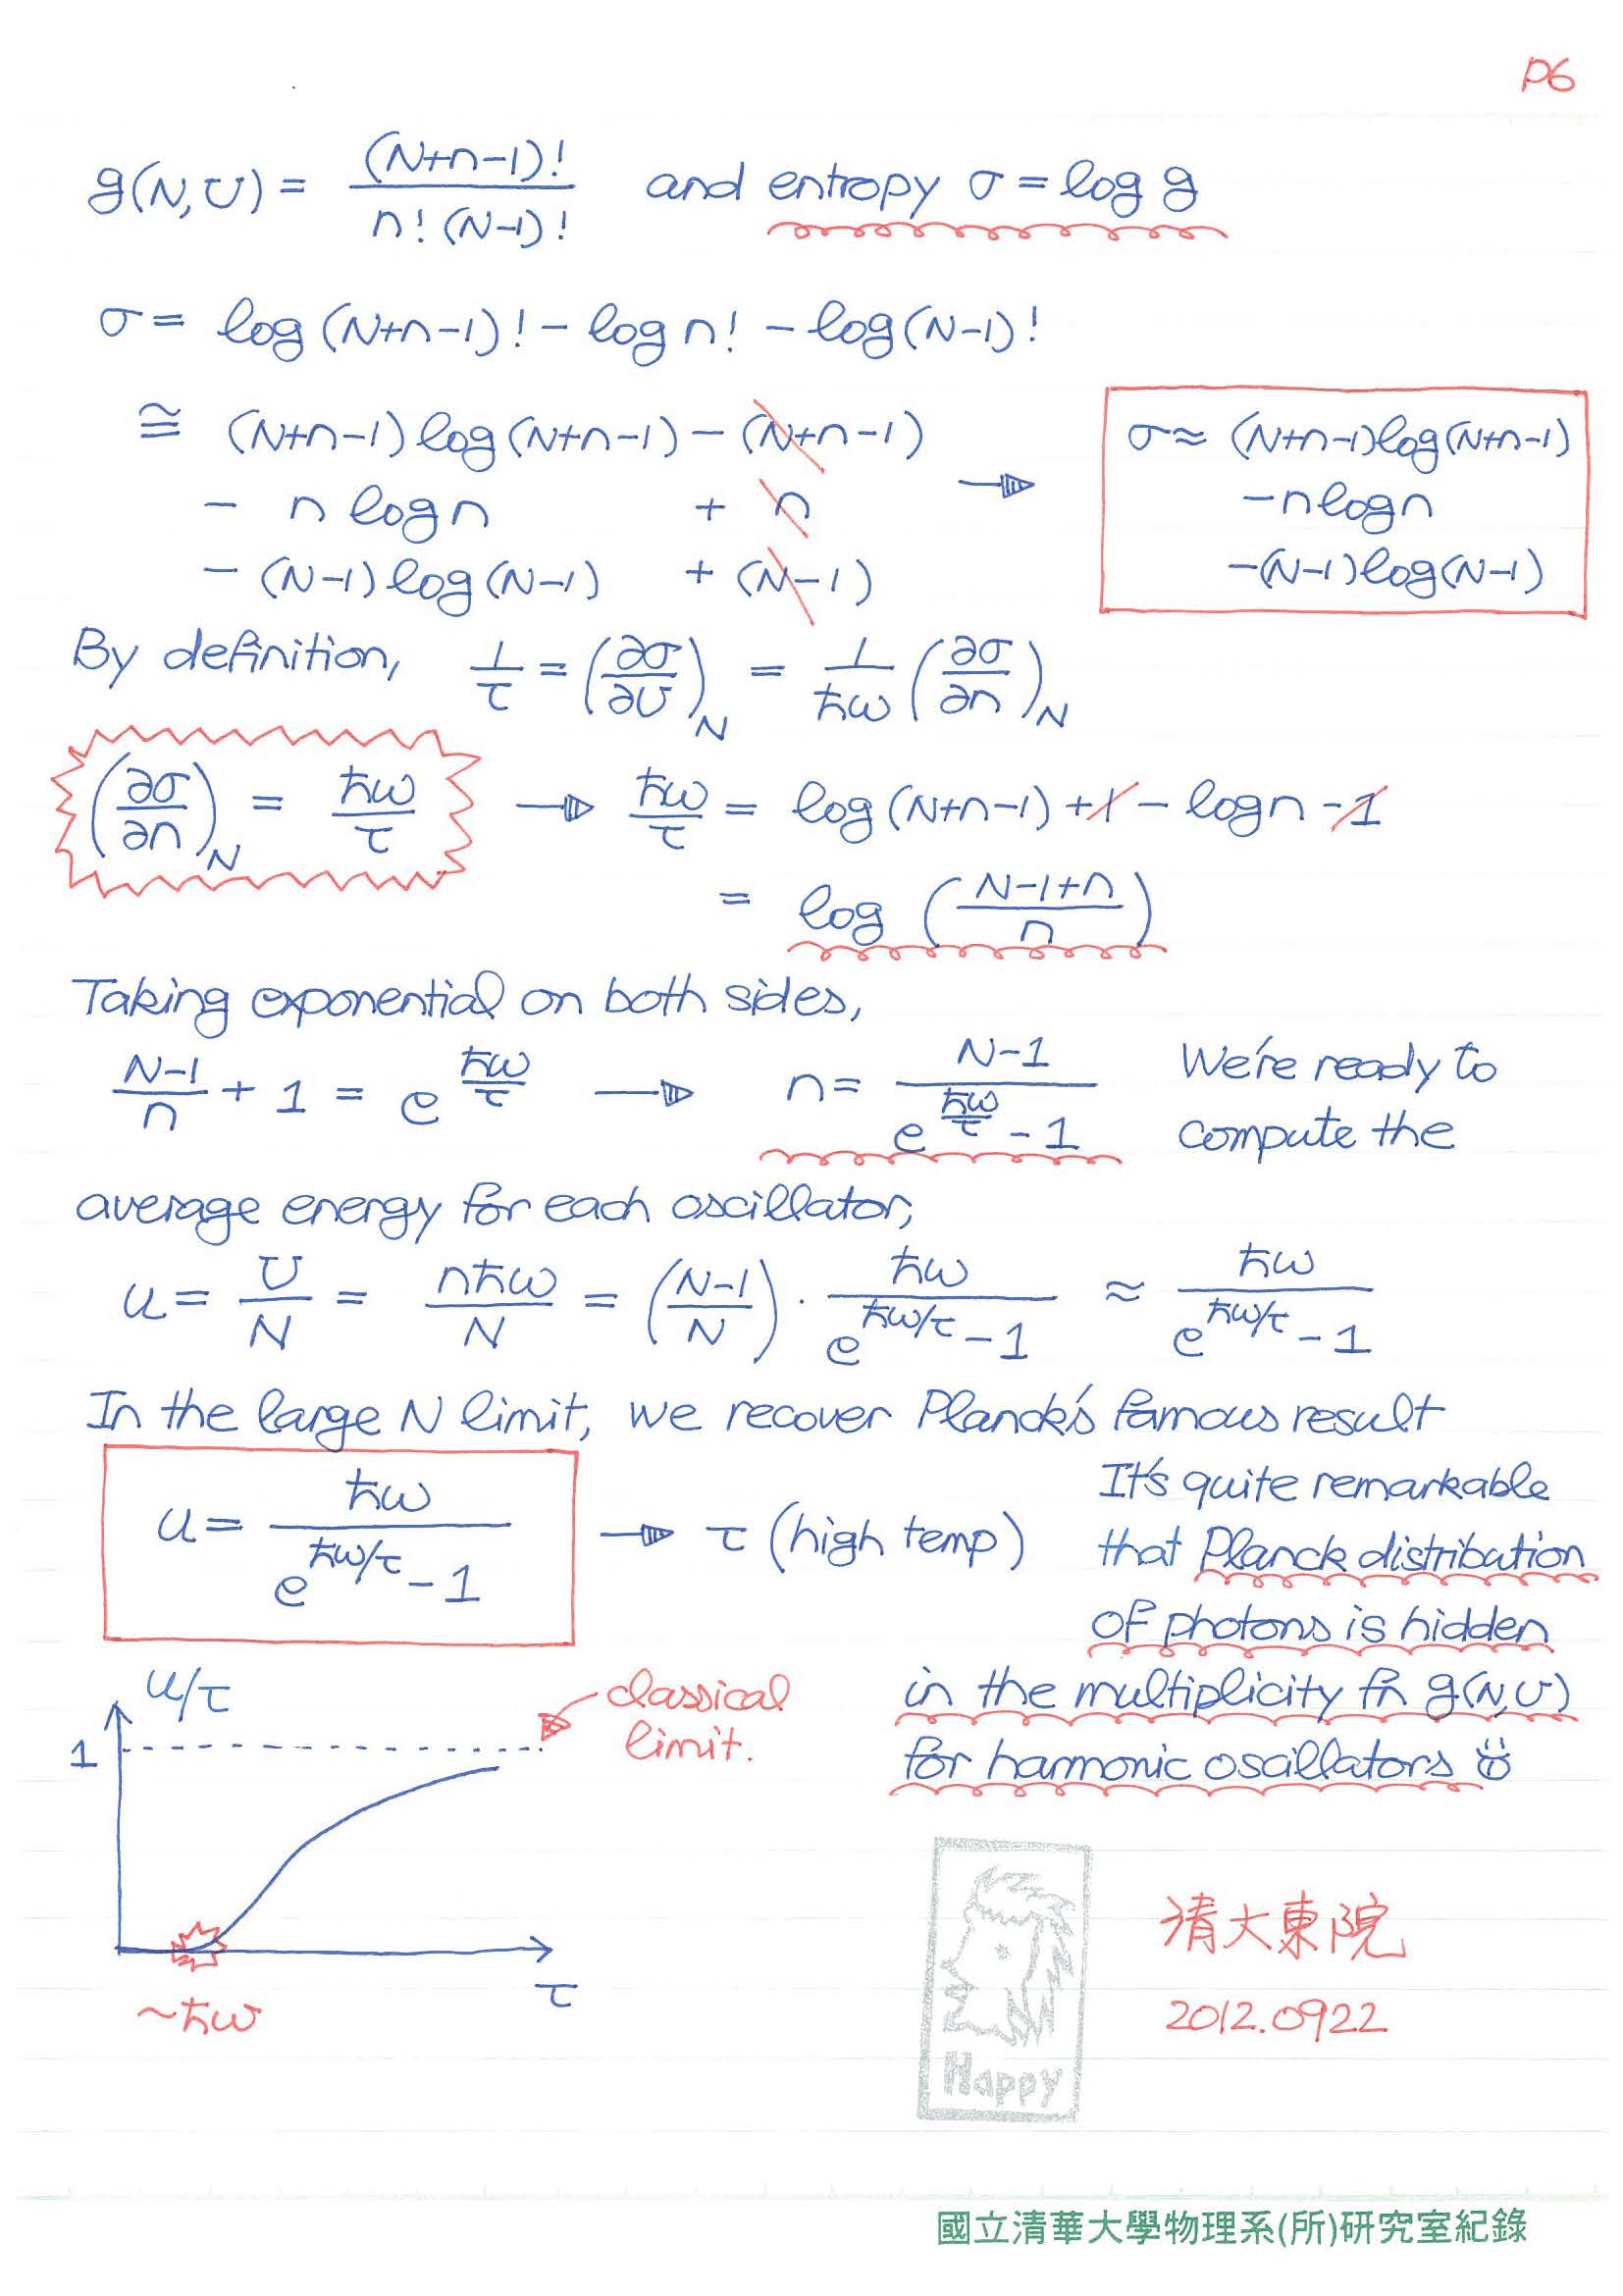 P6
g(N,U) = (N+n-1)! / n!(N-1)! and entropy σ = log g
σ = log(N+n-1)! - log n! - log(N-1)!
≅ (N+n-1) log(N+n-1) - (N+n-1)
- n log n + n
- (N-1) log(N-1) + (N-1)
→ σ ≈ (N+n-1)log(N+n-1)
-n log n
-(N-1)log(N-1)
By definition, 1/τ = (∂σ/∂U)_N = 1/ħω (∂σ/∂n)_N
(∂σ/∂n)_N = ħω/τ → ħω/τ = log(N+n-1) + 1 - log n - 1
= log ((N-1+n)/n)
Taking exponential on both sides,
(N-1)/n + 1 = e^(ħω/τ) → n = (N-1)/(e^(ħω/τ) - 1) We're ready to
compute the
average energy for each oscillator,
u = U/N = nħω/N = ((N-1)/N) · ħω/(e^(ħω/τ) - 1) ≈ ħω/(e^(ħω/τ) - 1)
In the large N limit, we recover Planck's famous result
u = ħω/(e^(ħω/τ) - 1) → τ (high temp)
It's quite remarkable
that Planck distribution
of photons is hidden
in the multiplicity fn g(N,U)
for harmonic oscillators
u/τ
1
classical
limit.
τ
~ħω
Happy
清大東院
2012.0922
國立清華大學物理系(所)研究室紀錄